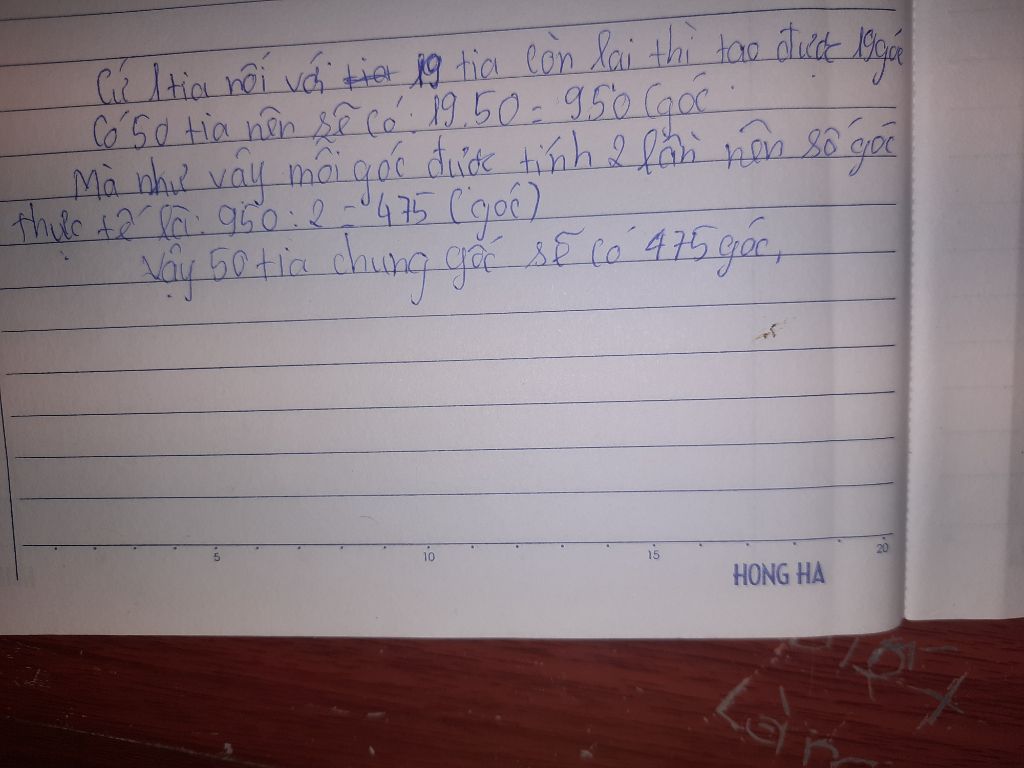 Cứ 1 tia nối với tia 19 tia còn lại thì tạo được 19 góc
Có 50 tia nên sẽ có: 19.50 = 950 (góc
Mà như vậy mỗi góc được tính 2 lần nên số góc
thực tế là: 950 : 2 = 475 (góc)
Vậy 50 tia chung gốc sẽ có 475 góc.
5 10 15 20
HONG HA